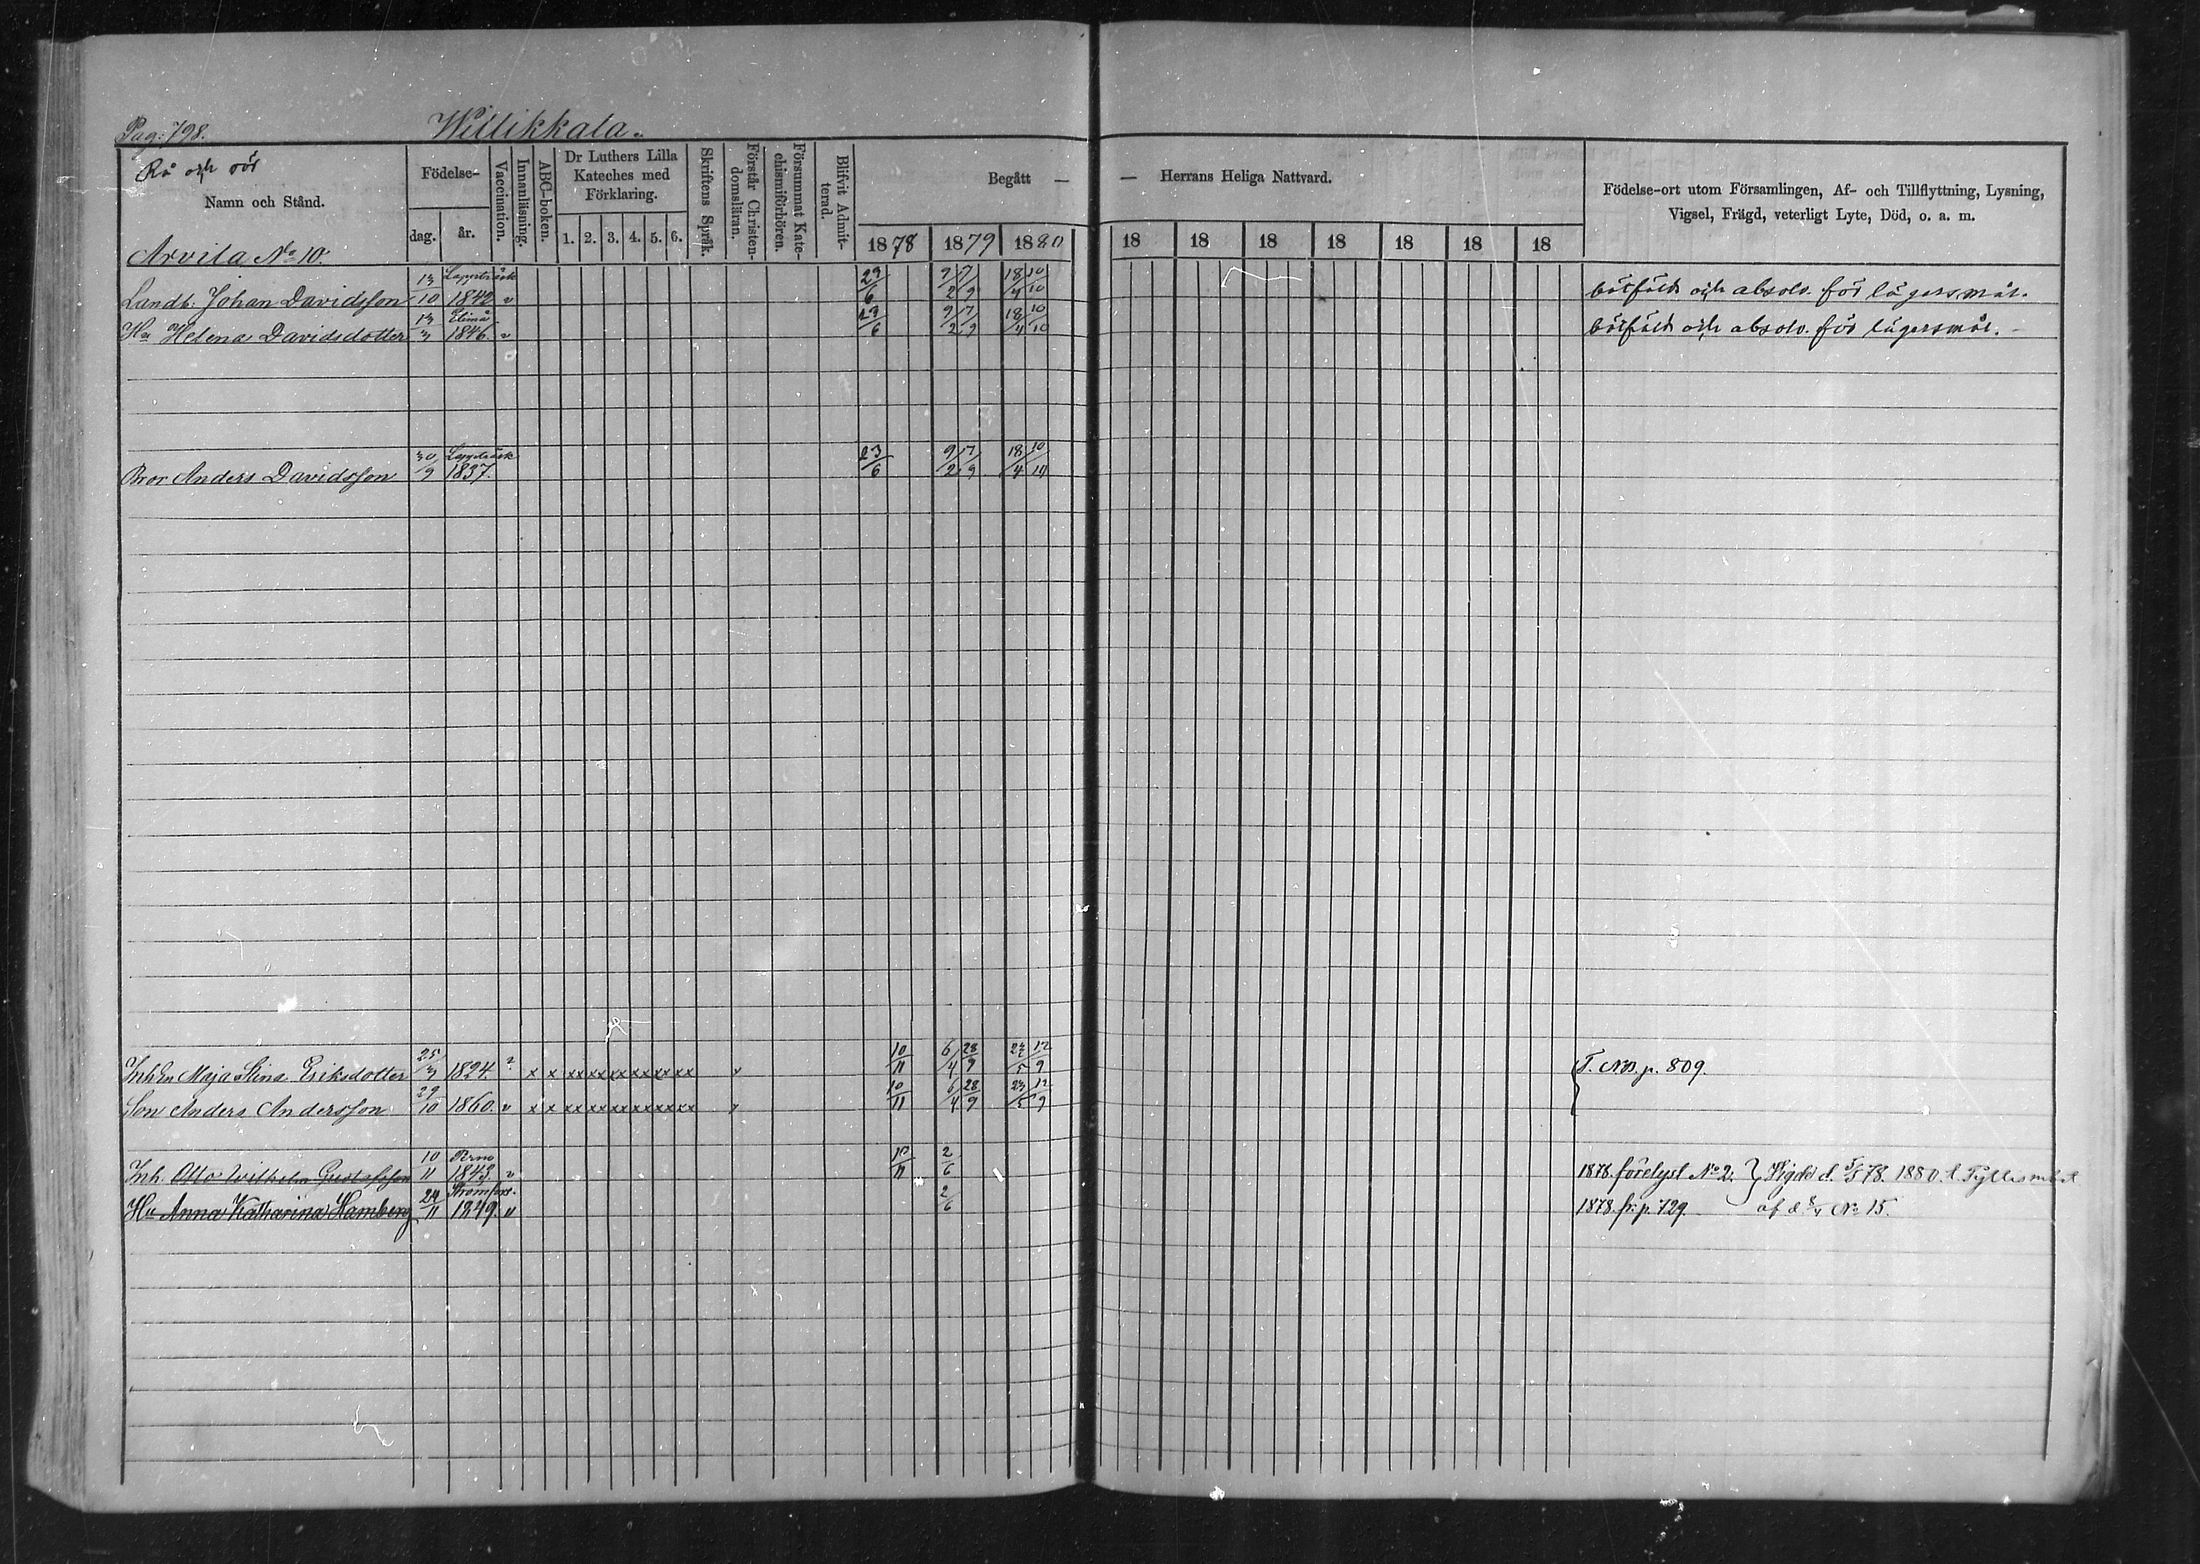 Pag: 798. Willikkala.
Rå och rör
Namn och Stånd.
Födelse-
dag. år.
Vaccination.
Innanläsning.
ABC-boken.
Dr Luthers Lilla
Kateches med
Förklaring.
1. 2. 3. 4. 5. 6.
Skriftens Språk.
Förstår Christen-
domsläran.
Försummat Kate-
chismiförhören.
Blifvit Admit-
terad.
Begått — — Herrans Heliga Nattvard.
1878 1879 1880 18 18 18 18 18 18 18
Födelse-ort utom Församlingen, Af- och Tillflyttning, Lysning,
Vigsel, Frägd, veterligt Lyte, Död, o. a. m.
Arvila No 10.
Landb. Johan Davidsson 13/10 Lappträsk 1842 v 23/6 9/2 7/9 18/4 10/10 bötfäld och absolv. för lägersmål.
Hu Helena Davidsdotter 13/3 Elimä 1846. v 23/6 9/2 7/9 18/4 10/10 bötfäld och absolv. för lägersmål. –
Bror Anders Davidsson 30/9 Lappträsk 1837. 23/6 9/2 7/9 18/4 10/10
Inhen Maja Stina Eriksdotter 25/3 1824. ? x x xx xx xx xx xx xx v 10/11 6/4 28/9 12/9 T. No. p. 809.
Son Anders Andersson 29/10 1860. v x x xx xx xx xx xx xx v 10/11 6/4 28/9 12/9
Inh. Otto Wilhelm Gustafsson 10/11 Perno 1843 v 2/6 1878. förelyst No 2. } Vigde d. 5/5 78. 1880. t.
Hu Anna Katharina Hamberg 24/11 Strömfors. 1849. v 2/6 1878. fr. p. 729. af d. No 15.